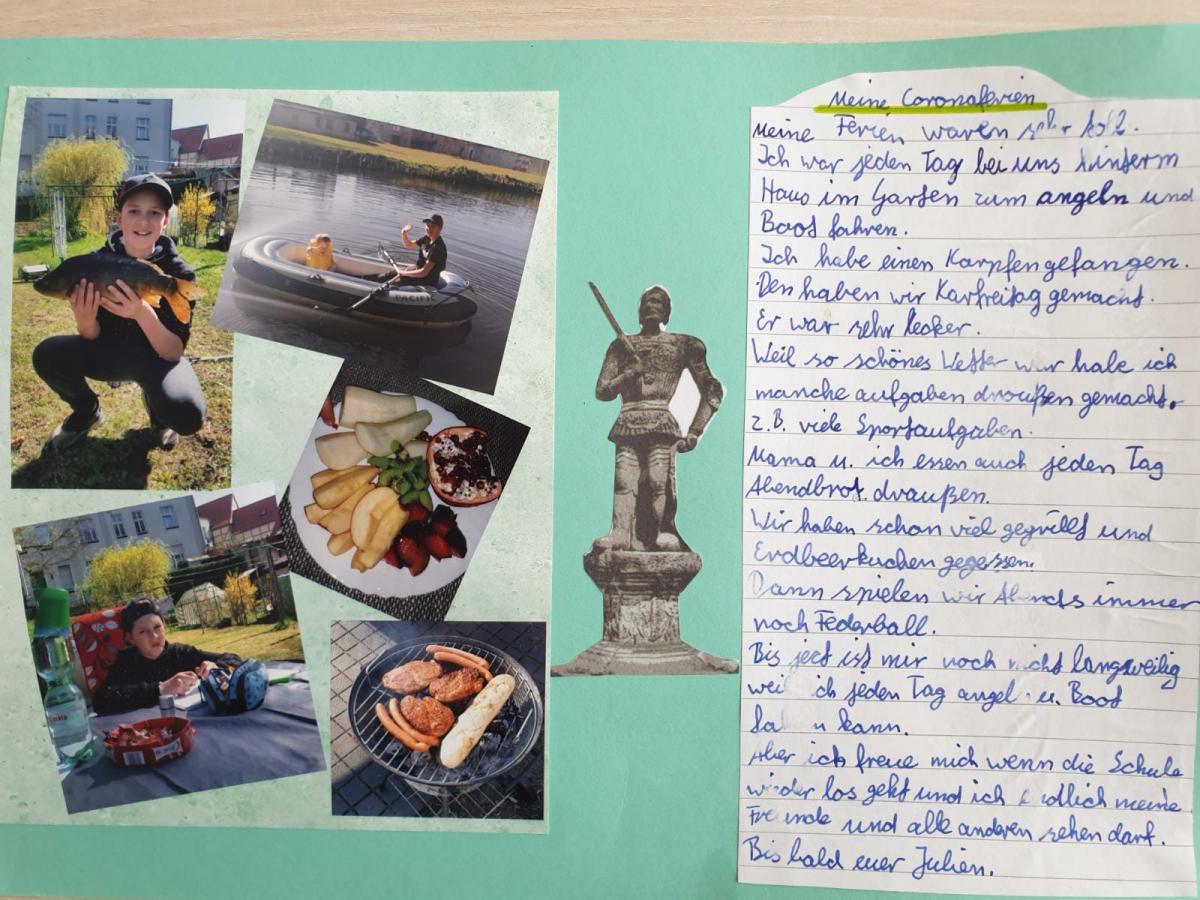 PACIFIC
Meine Coronaferien
Meine Ferien waren sehr
Ich war jeden Tag bei uns hinterm
Haus im Garten zum angeln und
Boot fahren.
Ich habe einen Karpfen gefangen.
Den haben wir Karfreitag gemacht.
Er war sehr lecker.
Weil so schönes Wetter war habe ich
manche aufgaben draußen gemacht.
z.B. viele Sportaufgaben.
Mama u. ich essen auch jeden Tag
Abendbrot draußen.
Wir haben schon viel gegrillt und
Erdbeerkuchen gegessen.
Dann spielen wir Abends immer
noch Federball.
Bis jetzt ist mir noch nicht langweilig
weil ich jeden Tag angeln u. Boot
fahren kann.
Aber ich freue mich wenn die Schule
wieder los geht und ich endlich meine
Freunde und alle anderen sehen darf.
Bis bald euer Julien.